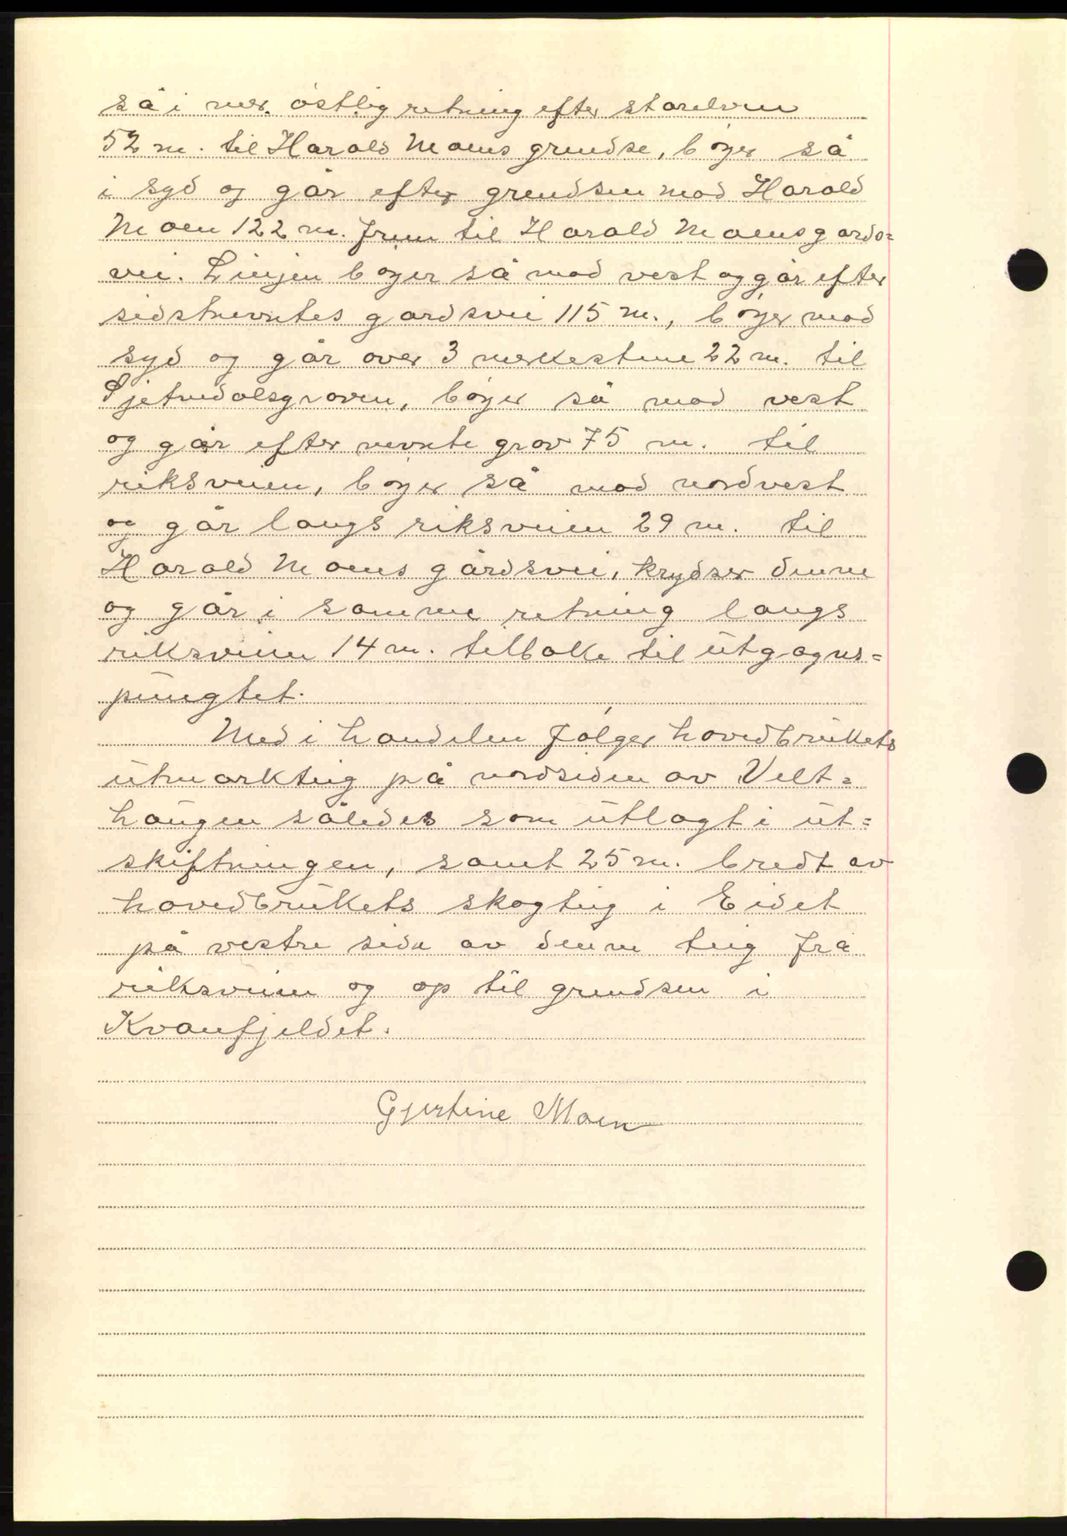 så i mer. østlig retning efter storelven
52 m. til Harald Moens grendse, bøyer så
i syd og går efter grendsen mod Harald
Moen 122 m. frem til Harald Moens gards=
vei. Linjen bøyer så mod vest og går efter
sidstnevntes gardsvei 115 m., bøyer mod
syd og går over 3 merkestene 22 m. til
Ljetnedalsgroven, bøyer så mod vest
og går efter nevnte grov 75 m. til
riksveien, bøyer så mod nordvest
og går langs riksveien 29 m. til
Harald Moens gårdsvei, krydser denne
og går i samme retning langs
riksveien 14 m. tilbake til utgagns=
pungtet.
Med i handelen følger hovedbrukets
utmarkteig på nordsiden av Velt=
haugen således som utlagt i ut=
skiftningen, samt 25 m. bredt av
hovedbrukets skogteig i Eidet
på vestre side av denne teig fra
riksveien og op til grendsen i
Kvanfjeldet.
Gjertine Moen